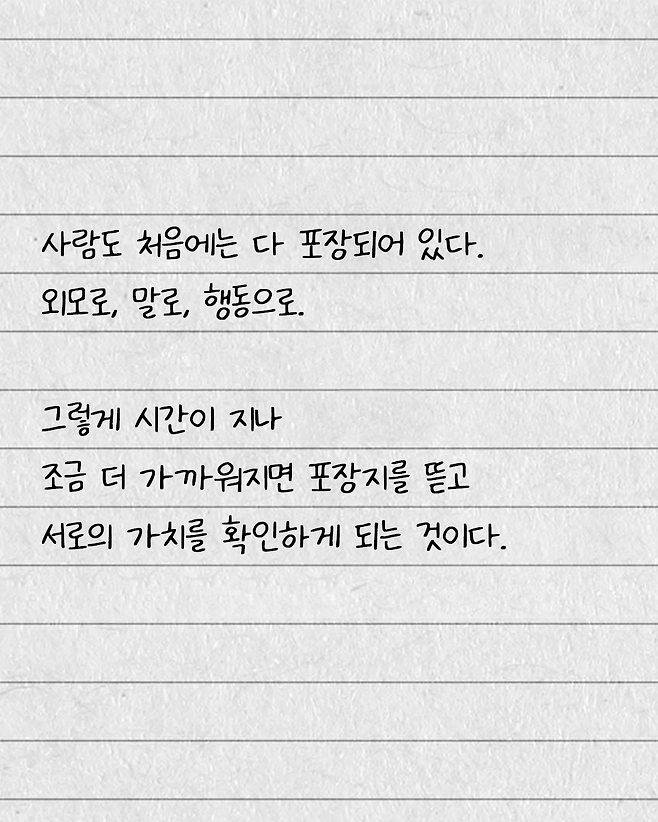 사람도 처음에는 다 포장되어 있다.
외모로, 말로, 행동으로.
그렇게 시간이 지나
조금 더 가까워지면 포장지를 뜯고
서로의 가치를 확인하게 되는 것이다.